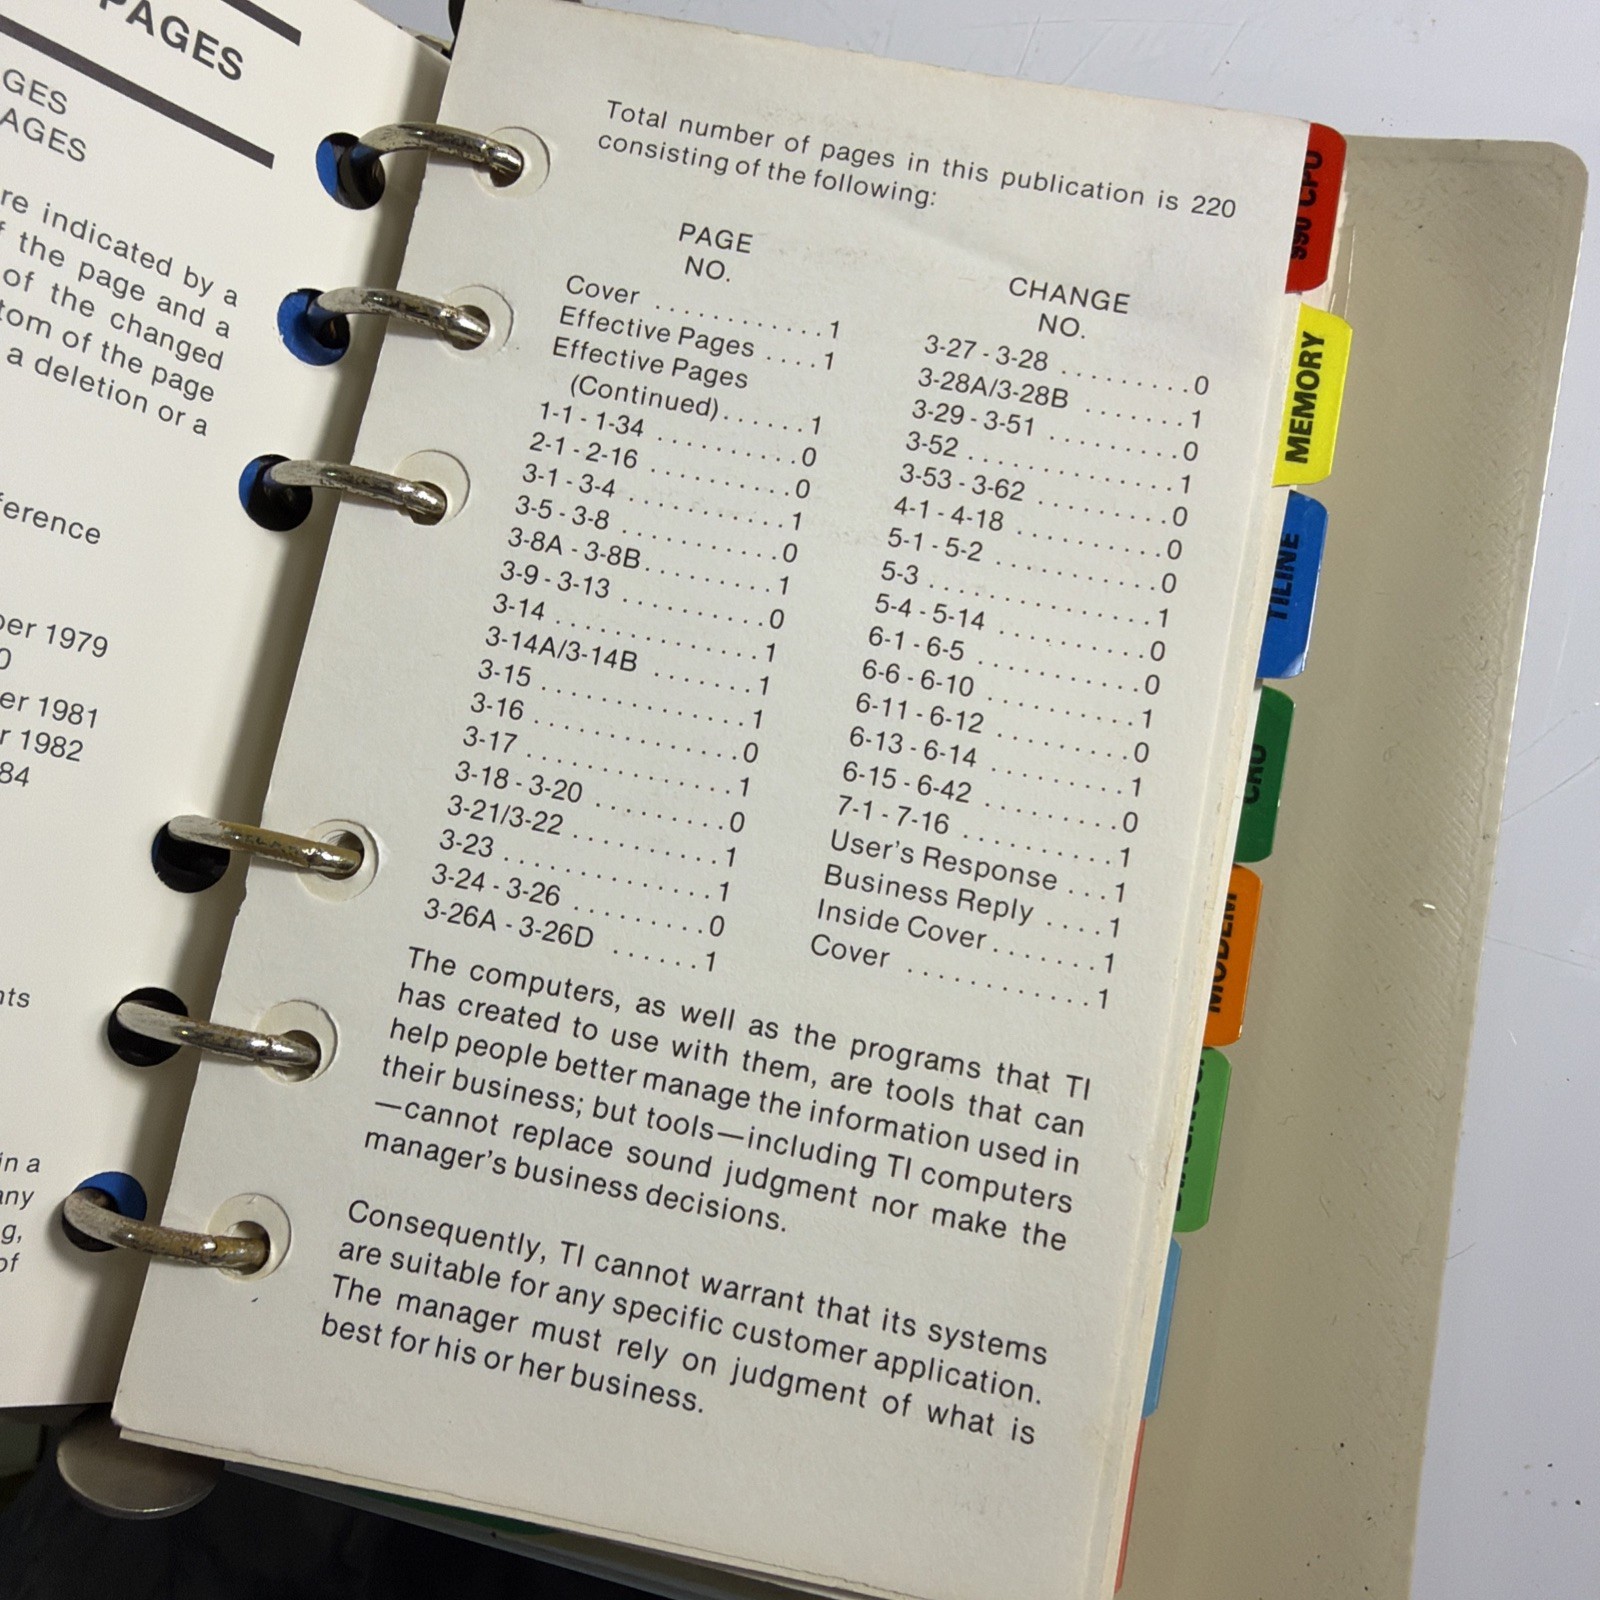 PAGES
GES
AGES
re indicated by a
f the page and a
of the changed
tom of the page
a deletion or a
ference
ber 1979
0
er 1981
r 1982
84
nts
in a
any
g,
of
Total number of pages in this publication is 220
consisting of the following:
PAGE
NO.
Cover ............1
Effective Pages ....1
Effective Pages
(Continued)......1
1-1 - 1-34 ..........0
2-1 - 2-16 ..........0
3-1 - 3-4 ...........1
3-5 - 3-8 ...........0
3-8A - 3-8B.........1
3-9 - 3-13 ..........0
3-14 ..............1
3-14A/3-14B .......1
3-15 ..............1
3-16 ..............0
3-17 ..............1
3-18 - 3-20 .........0
3-21/3-22 ..........1
3-23 ..............1
3-24 - 3-26 .........0
3-26A - 3-26D ......1
CHANGE
NO.
3-27 - 3-28 .........0
3-28A/3-28B .......1
3-29 - 3-51 ........0
3-52 ..............1
3-53 - 3-62 .........0
4-1 - 4-18 ..........0
5-1 - 5-2 ...........0
5-3 ...............1
5-4 - 5-14 ..........0
6-1 - 6-5 ...........0
6-6 - 6-10 ..........1
6-11 - 6-12 .........0
6-13 - 6-14 .........1
6-15 - 6-42 .........0
7-1 - 7-16 ..........1
User's Response ...1
Business Reply ....1
Inside Cover.......1
Cover ............1
The computers, as well as the programs that TI
has created to use with them, are tools that can
help people better manage the information used in
their business; but tools—including TI computers
—cannot replace sound judgment nor make the
manager's business decisions.
Consequently, TI cannot warrant that its systems
are suitable for any specific customer application.
The manager must rely on judgment of what is
best for his or her business.
990 CPU
MEMORY
TILINE
CRU
MODEM